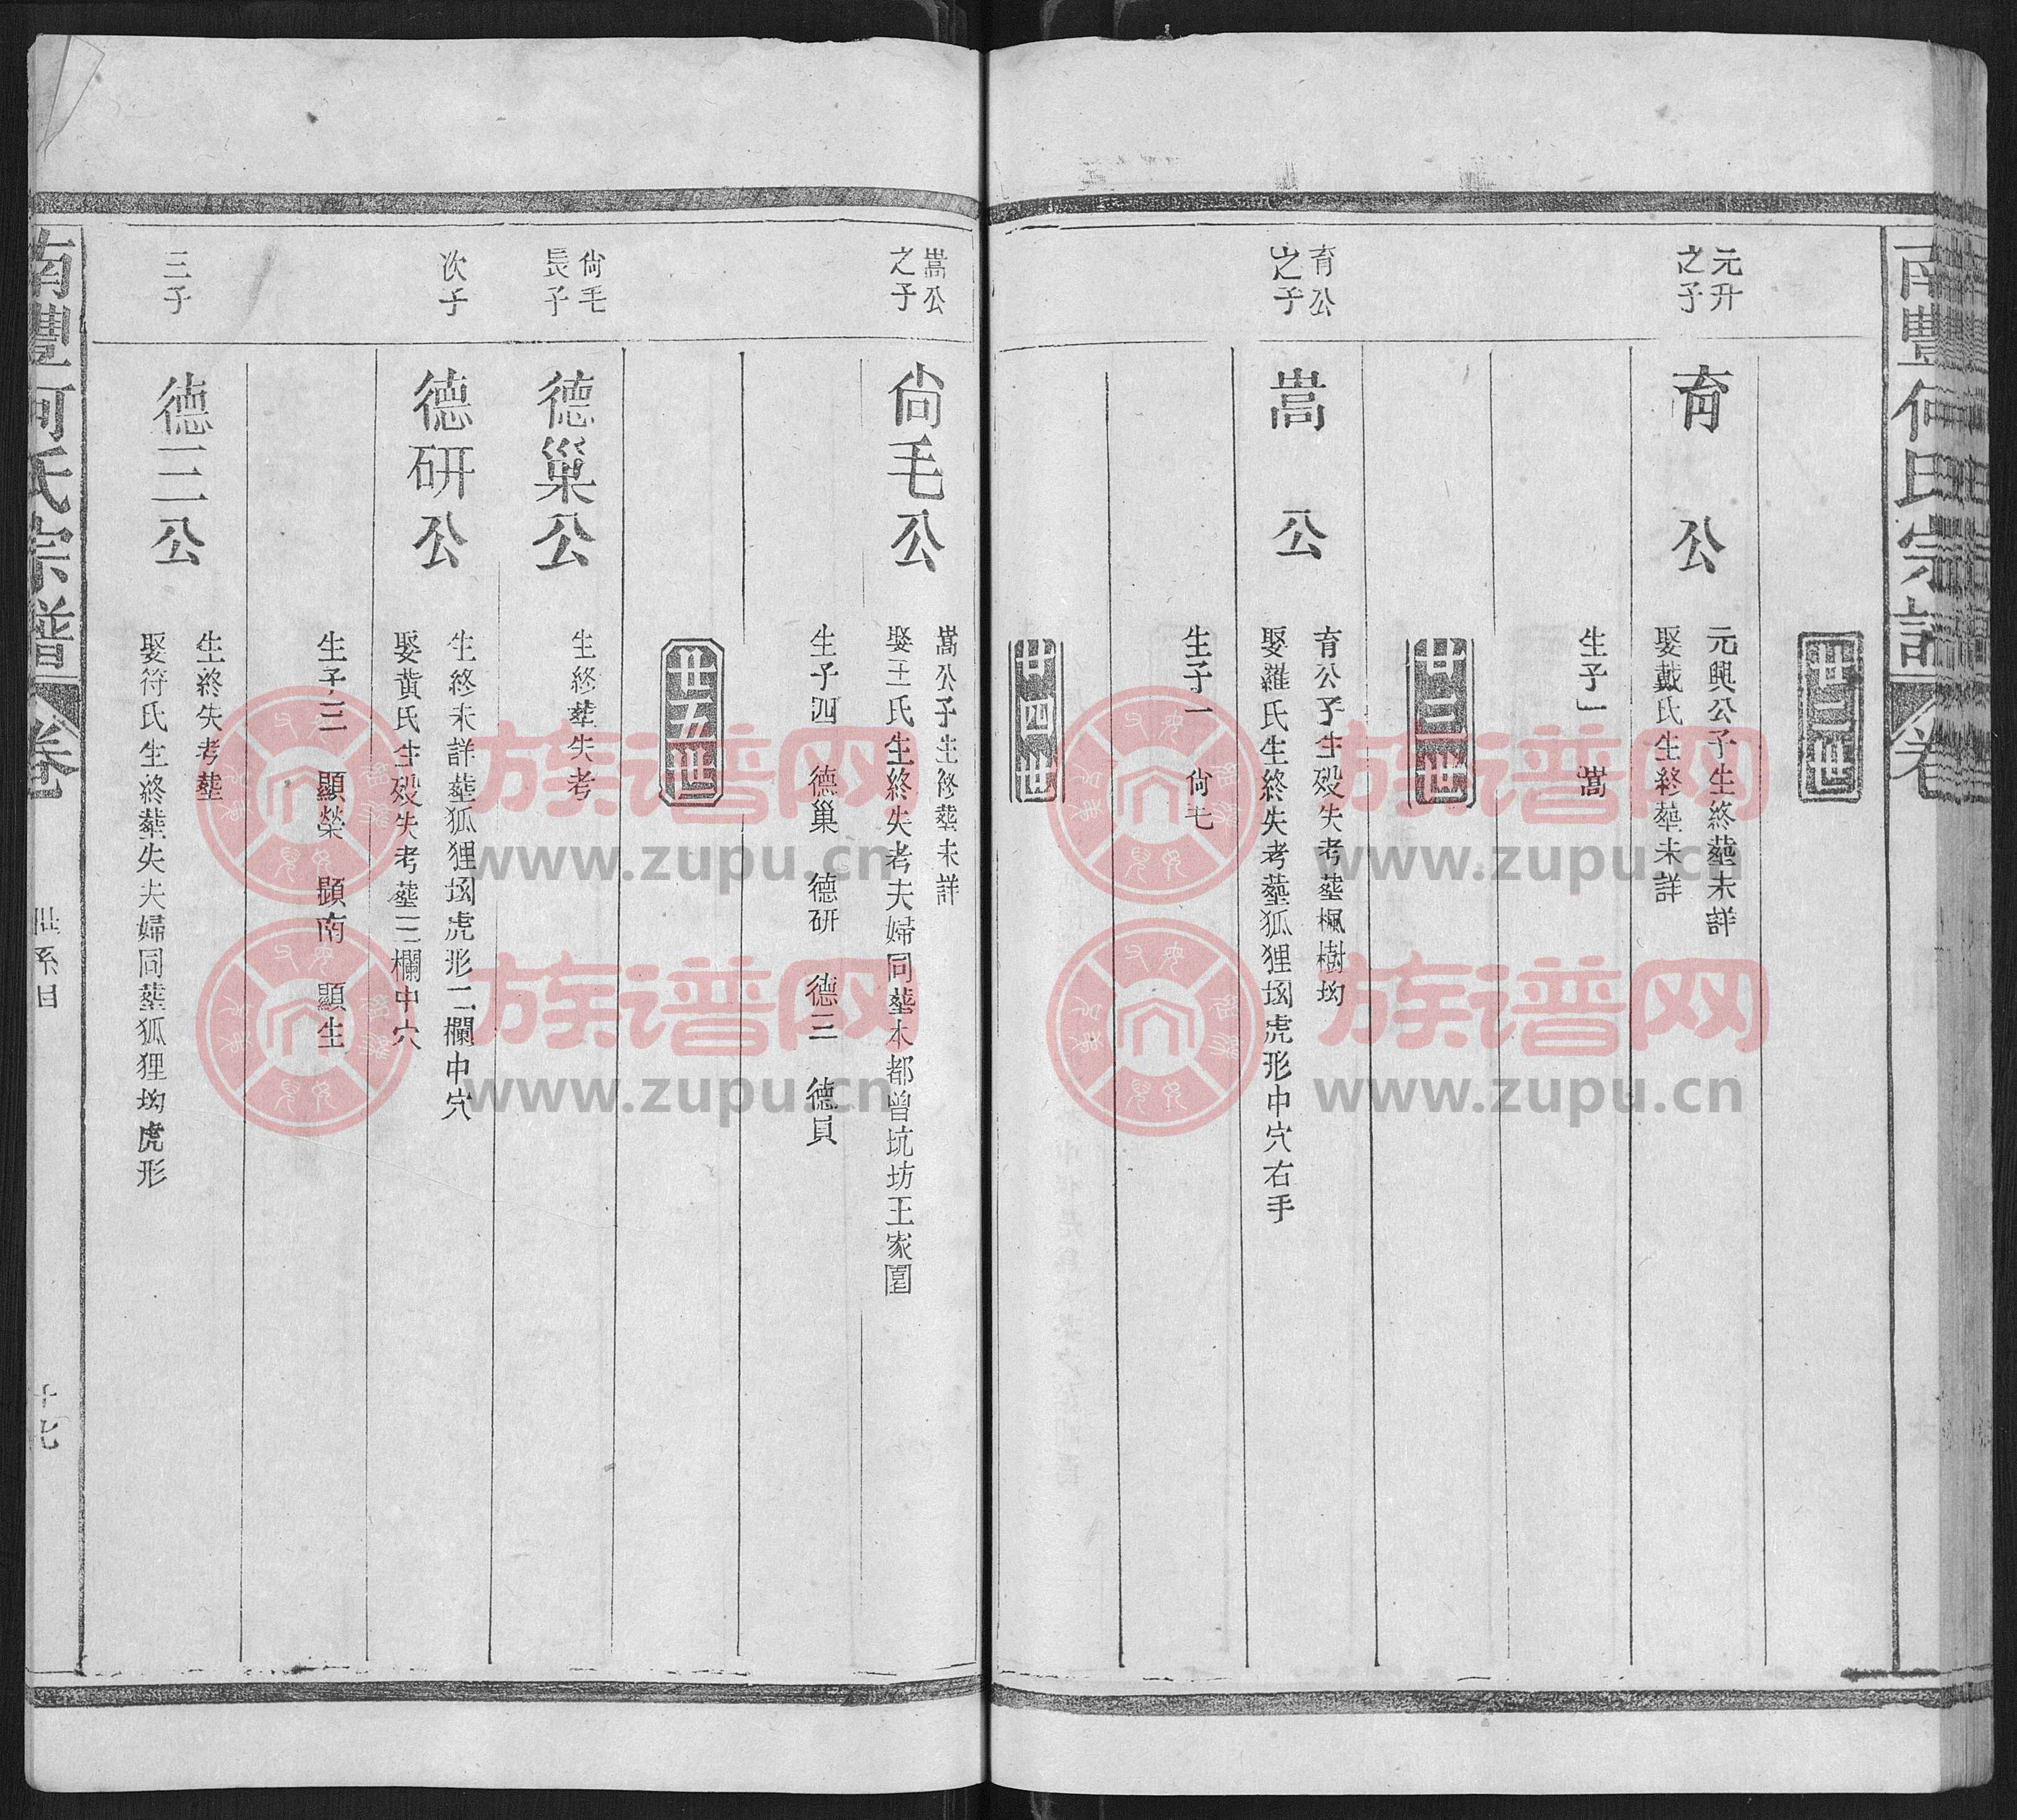 南豐何氏宗譜 卷
廿二世
元升
之子
育公
元興公子生終塟未詳
娶戴氏生終塟未詳
生子一 嵩
廿三世
育公
之子
嵩公
育公子生殁失考塟楓樹坳
娶羅氏生終失考塟狐狸坳虎形中穴右手
生子一 尙毛
廿四世
嵩公
之子
尙毛公
嵩公子生終塟未詳
娶王氏生終失考夫婦同塟本都曾坑坊王家園
生子四 德巢 德研 德三 德員
廿五世
尙毛
長子
德巢公
生終塟失考
次子
德研公
生終未詳塟狐狸坳虎形二欄中穴
娶黄氏生殁失考塟三欄中穴
生子三 顯榮 顯南 顯生
三子
德三公
生終失考塟
娶符氏生終塟失夫婦同塟狐狸坳虎形
南豐何氏宗譜 卷七
世系目
族谱网
www.zupu.cn
族谱网
www.zupu.cn
族谱网
www.zupu.cn
族谱网
www.zupu.cn